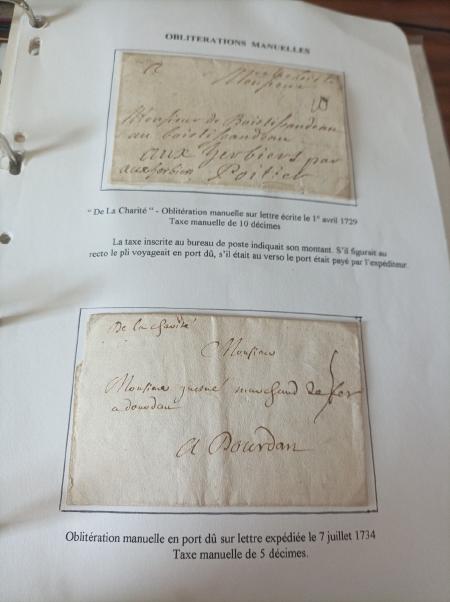 OBLITERATIONS MANUELLES
Monsieur
10
Monsieur de Boistissandeau
au boistissandeau
aux herbiers par
aux herbiers Poitier
" De La Charité " - Oblitération manuelle sur lettre écrite le 1° avril 1729
Taxe manuelle de 10 décimes
La taxe inscrite au bureau de poste indiquait son montant. S'il figurait au
recto le pli voyageait en port dû, s'il était au verso le port était payé par l'expéditeur.
De la charité
Monsieur
Monsieur quesné marchand de fer
a dourdan
A Dourdan
Oblitération manuelle en port dû sur lettre expédiée le 7 juillet 1734
Taxe manuelle de 5 décimes.